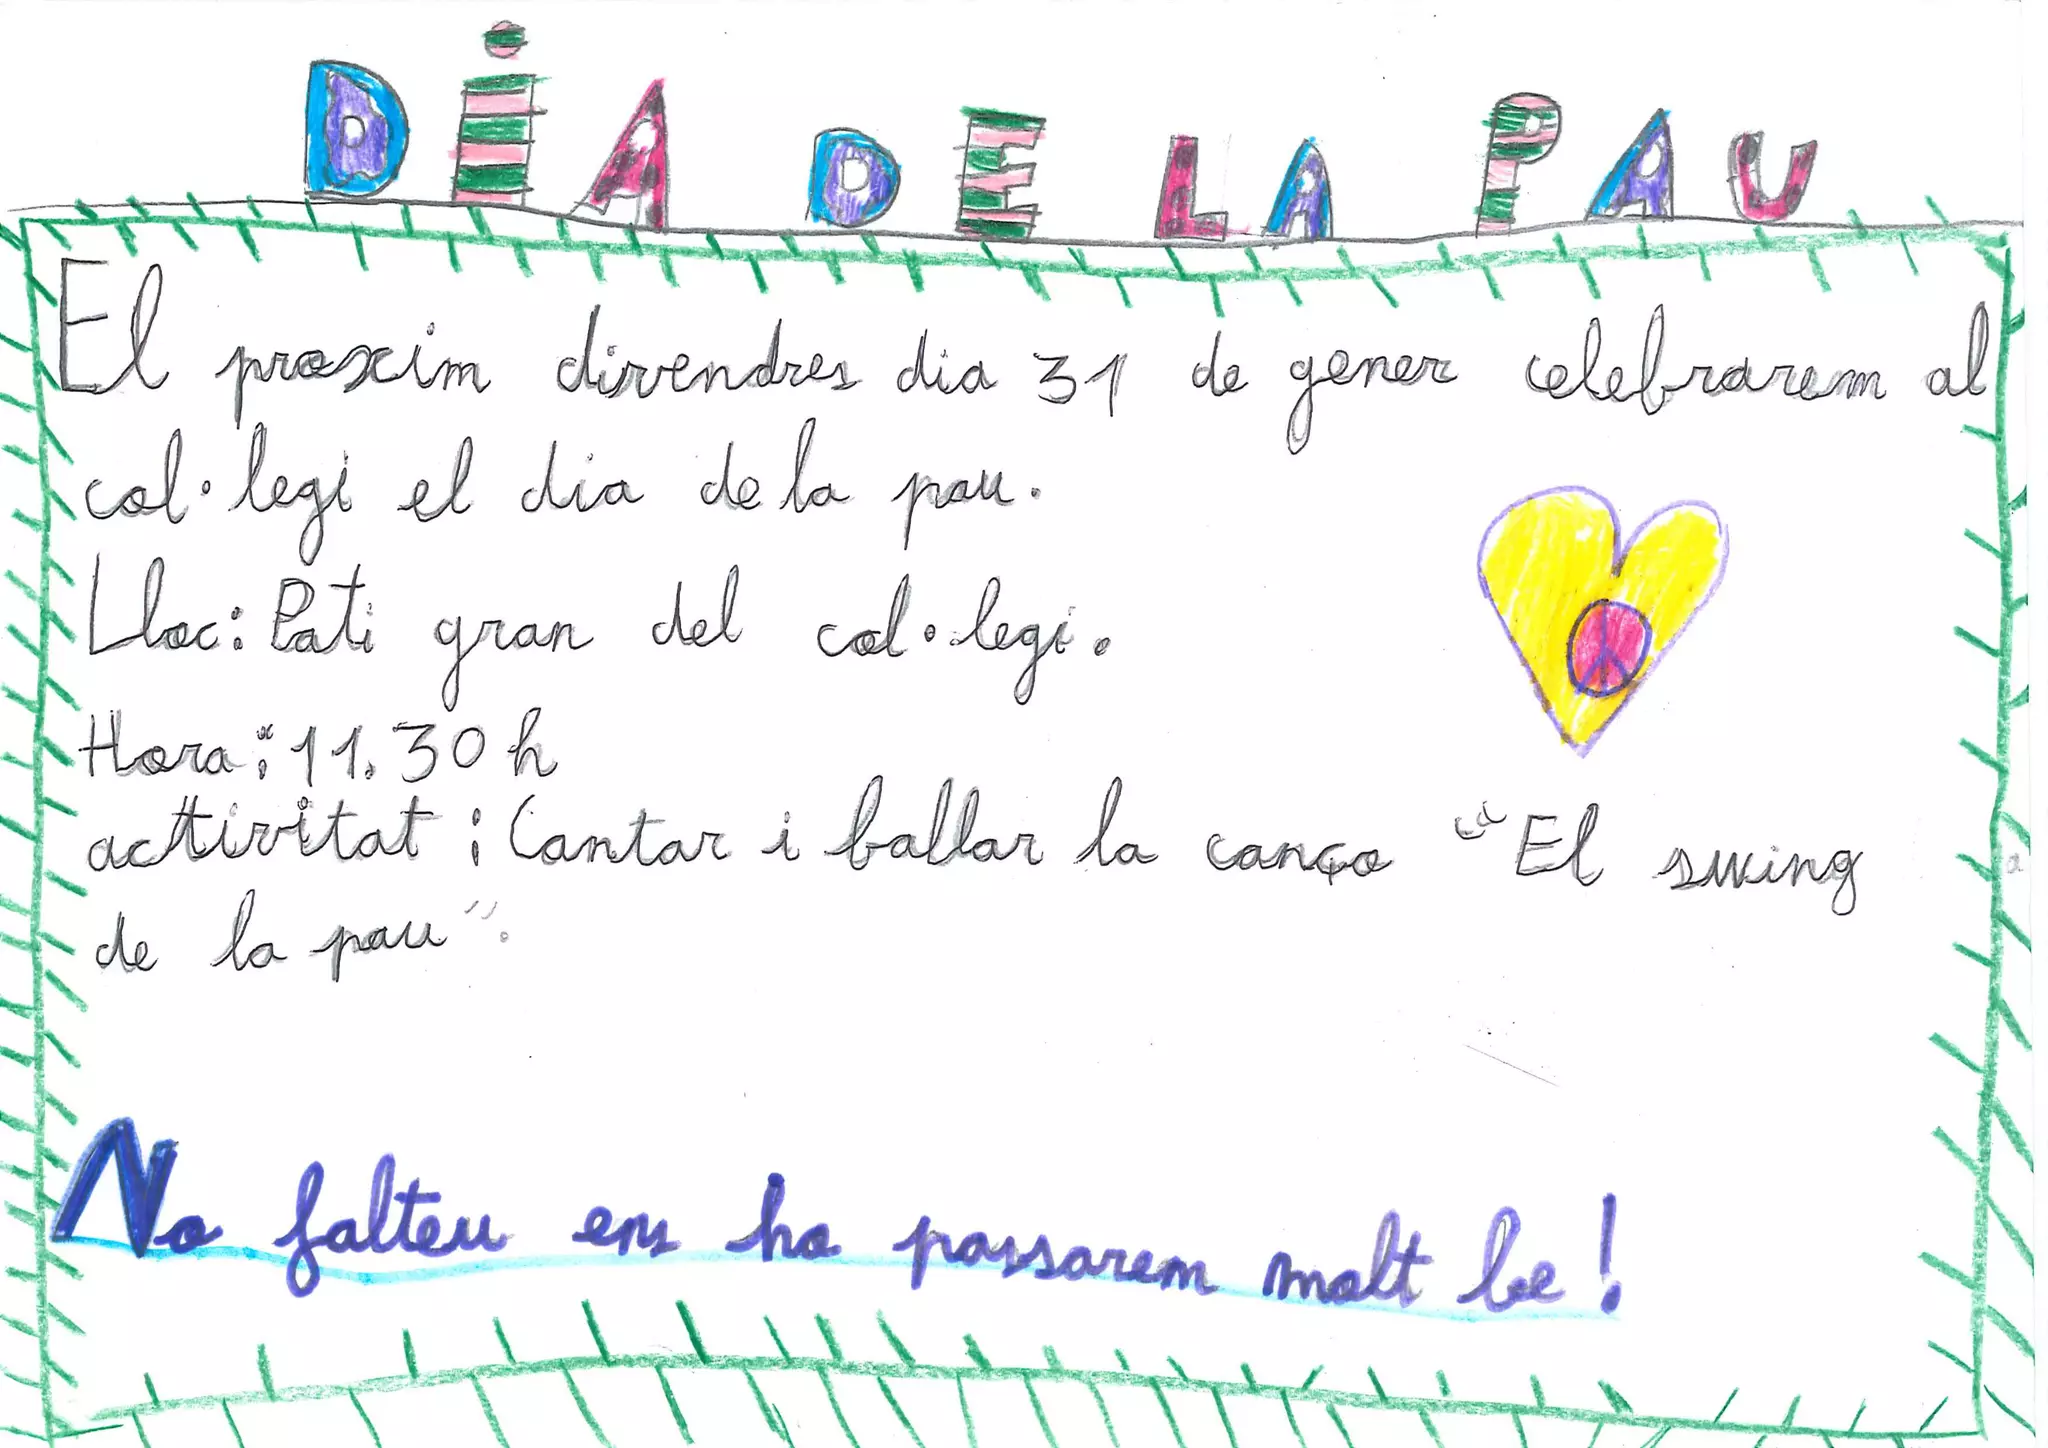 DiA DE LA PAU
El proxim divendres dia 31 de gener celebrarem al
col·legi el dia de la pau.
Lloc: Pati gran del col·legi.
Hora: 11.30 h
activitat: Cantar i ballar la canço "El swing
de la pau".
No falteu ens ho passarem molt be!